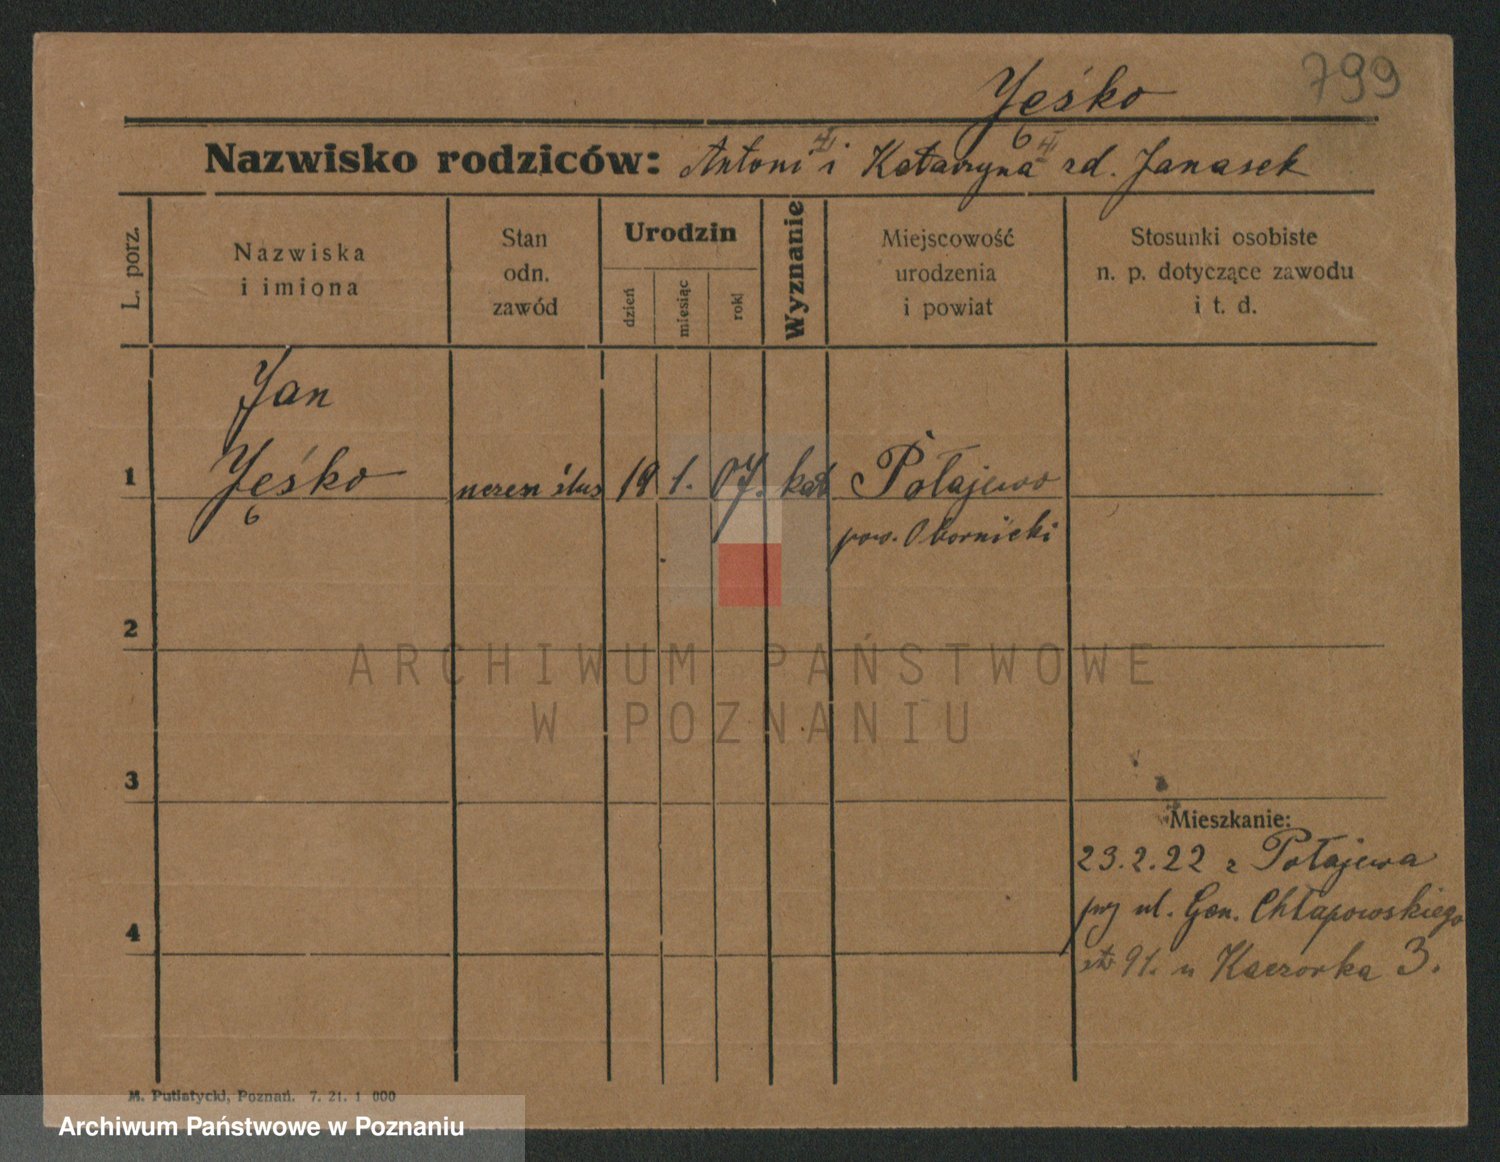 799
Jeśko
6
Nazwisko rodziców: Antoni i Katarzyna rd. Janasek
L. porz.
Nazwiska
i imiona
Stan
odn.
zawód
Urodzin
dzień
miesiąc
rok
Wyznanie
Miejscowość
urodzenia
i powiat
Stosunki osobiste
n. p. dotyczące zawodu
i t. d.
Jan
1 Jeśko 18 1. 07. kat Połajewo
6
pow. Obornicki
2
ARCHIWUM PAŃSTWOWE
W POZNANIU
3
Mieszkanie:
23.2.22 z Połajewa
ul. Gen. Chłapowskiego
4
91. u Kaczorka 3.
M. Putiatycki, Poznań. 7. 21. 1 000
Archiwum Państwowe w Poznaniu